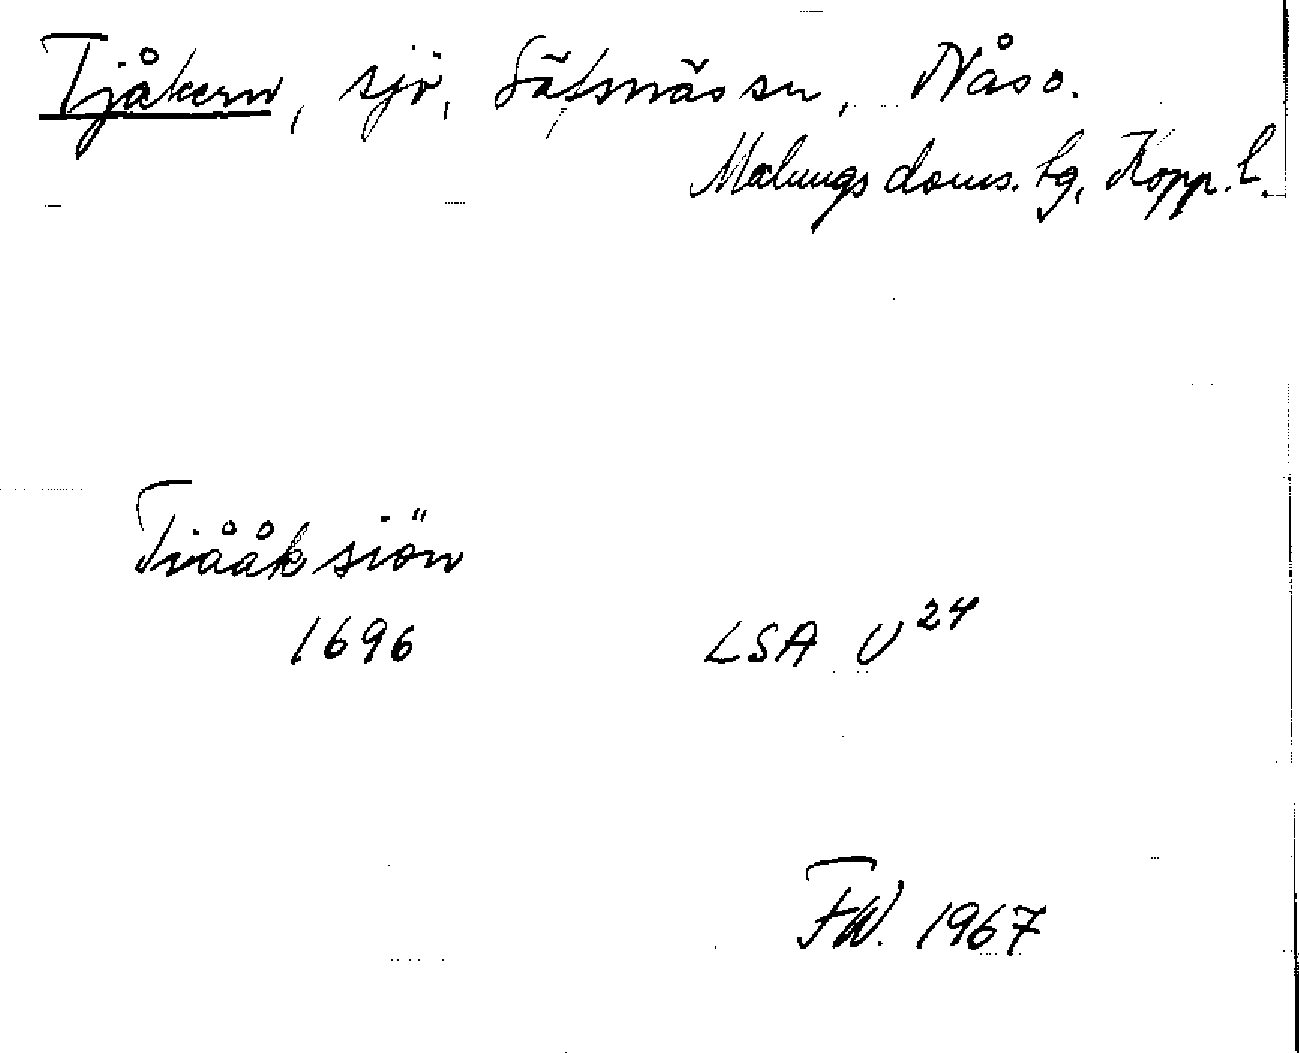 Tjåkern, sjö, Sätsmässen, Nås s.
Malungs doms. lg, Kopp. l.
Tiååksiön
1696
LSA U 24
FW. 1967